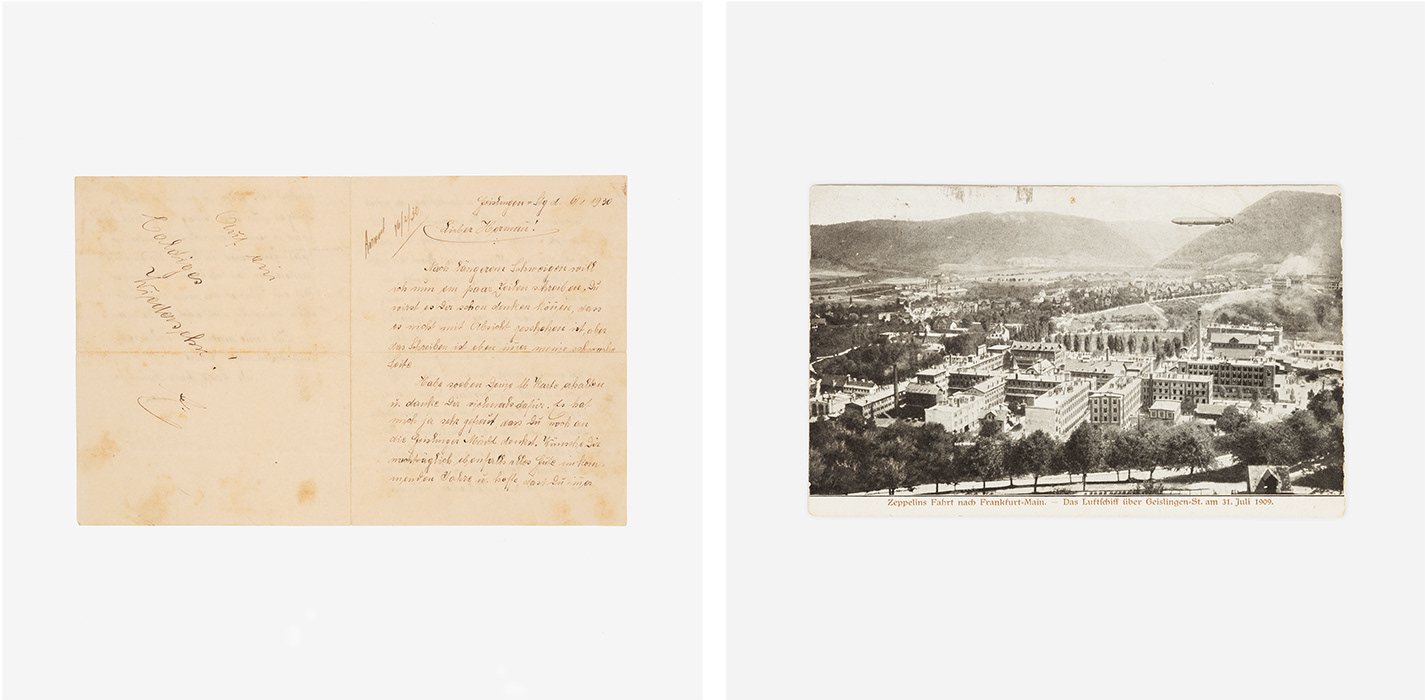 Auf ein
baldiges
Wiedersehn!
Geislingen-Stg d. 1930
Lieber Herman!
Nach längerem Schweigen will
ich nun ein paar Zeilen schreiben. Du
wirst es Dir schon denken können, dass
es nicht mit Absicht geschehen ist, aber
das Schreiben ist eben immer meine schwache
Seite
Habe soeben Deine lb Karte erhalten
u. danke Dir vielmals dafür. Es hat
mich ja sehr gefreut dass Du noch an
die Geislinger denkst. Wünsche Dir
nachträglich ebenfalls alles Gute im kom-
menden Jahre u. hoffe dass Du
Zeppelins Fahrt nach Frankfurt-Main. — Das Luftschiff über Geislingen-St. am 31. Juli 1909.